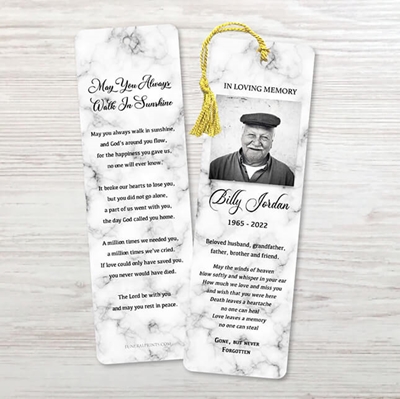 May You Always
Walk In Sunshine
May you always walk in sunshine,
and God's around you flow,
for the happiness you gave us,
no one will ever know.
It broke our hearts to lose you,
but you did not go alone,
a part of us went with you,
the day God called you home.
A million times we needed you,
a million times we've cried.
If love could only have saved you,
you never would have died.
The Lord be with you
and may you rest in peace.
IN LOVING MEMORY
Billy Jordan
1965 - 2022
Beloved husband, grandfather,
father, brother and friend.
May the winds of heaven
blew softly and whisper in your ear
How much we love and miss you
and wish that you were here
Death leaves a heartache
no one can heal
Love leaves a memory
no one can steal
Gone, but never
Forgotten